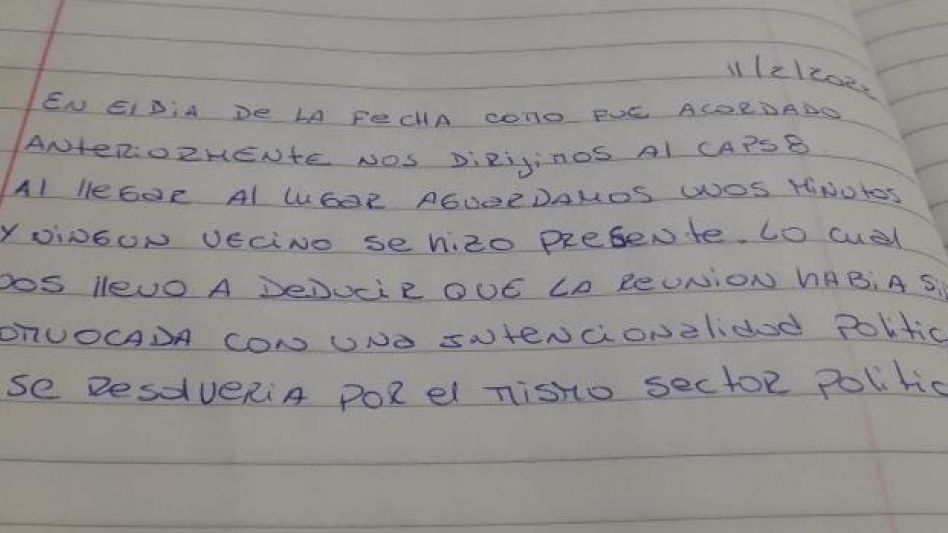 11/2/2022
EN El DiA De LA FeCHA COMO FUE ACORDADO
ANteRiORMENtE NOS DiRijiMOS Al CAPS 8
Al llEGAR Al LUGAR AGUARDAMOS UNOS MiNUtOS
Y NiNGUN VECiNO Se hizo PRESENte. Lo cual
NOS lleVO A DeDUCiR QUE LA REUNION hABiA Si
ONVOCADA CON UNA INtENCiONAlidad Politic
SE ResolVERiA POR el MiSMO SectoR Politic